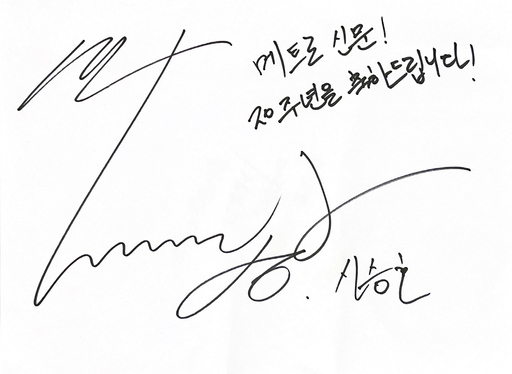 메트로 신문!
20주년을 축하드립니다!
신승호